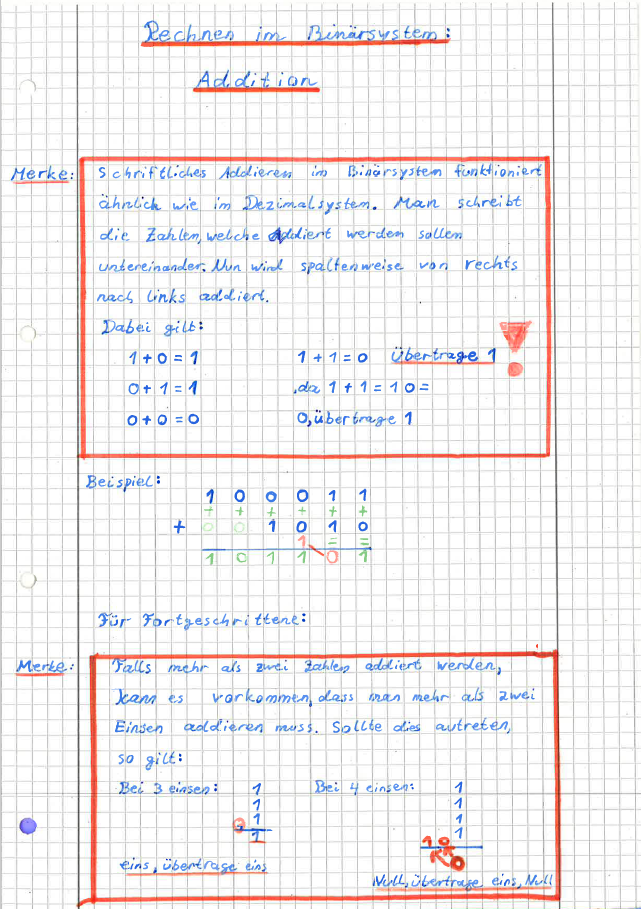 Rechnen im Binärsystem:
Addition
Merke:
Schriftliches Addieren im Binärsystem funktioniert
ähnlich wie im Dezimalsystem. Man schreibt
die Zahlen, welche addiert werden sollen
untereinander. Nun wird spaltenweise von rechts
nach links addiert.
Dabei gilt:
1 + 0 = 1 1 + 1 = 0 Übertrage 1
0 + 1 = 1 , da 1 + 1 = 1 0 =
0 + 0 = 0 0, übertrage 1
Beispiel:
1 0 0 0 1 1
+ + + + + +
+ 0 0 1 0 1 0
1 = =
1 0 1 1 0 1
Für Fortgeschrittene:
Merke:
Falls mehr als zwei Zahlen addiert werden,
kann es vorkommen, dass man mehr als zwei
Einsen addieren muss. Sollte dies autreten,
so gilt:
Bei 3 einsen: 1 Bei 4 einsen: 1
1 1
1 1
1 1
1 0
0
eins, übertrage eins
Null, übertrage eins, Null